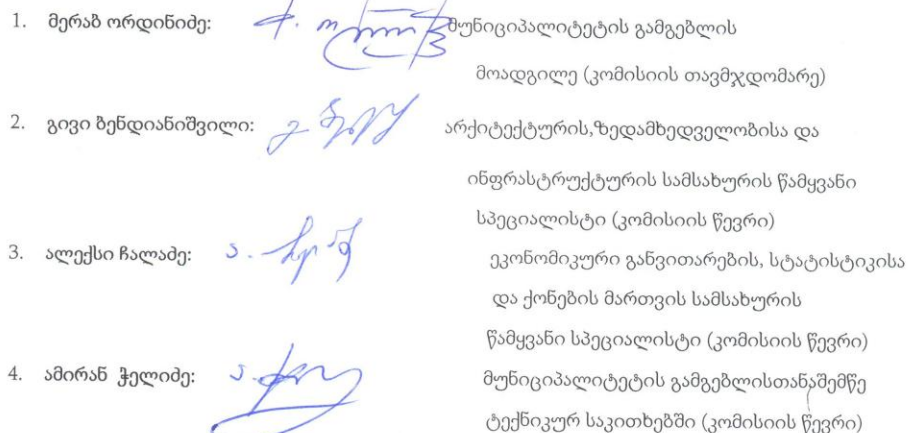 1. მერაბ ორდინიძე: მუნიციპალიტეტის გამგებლის
მოადგილე (კომისიის თავმჯდომარე)
2. გივი ბენდიანიშვილი: არქიტექტურის,ზედამხედველობისა და
ინფრასტრუქტურის სამსახურის წამყვანი
სპეციალისტი (კომისიის წევრი)
3. ალექსი ჩალაძე: ეკონომიკური განვითარების, სტატისტიკისა
და ქონების მართვის სამსახურის
წამყვანი სპეციალისტი (კომისიის წევრი)
4. ამირან ჭელიძე: მუნიციპალიტეტის გამგებლისთანაშემწე
ტექნიკურ საკითხებში (კომისიის წევრი)